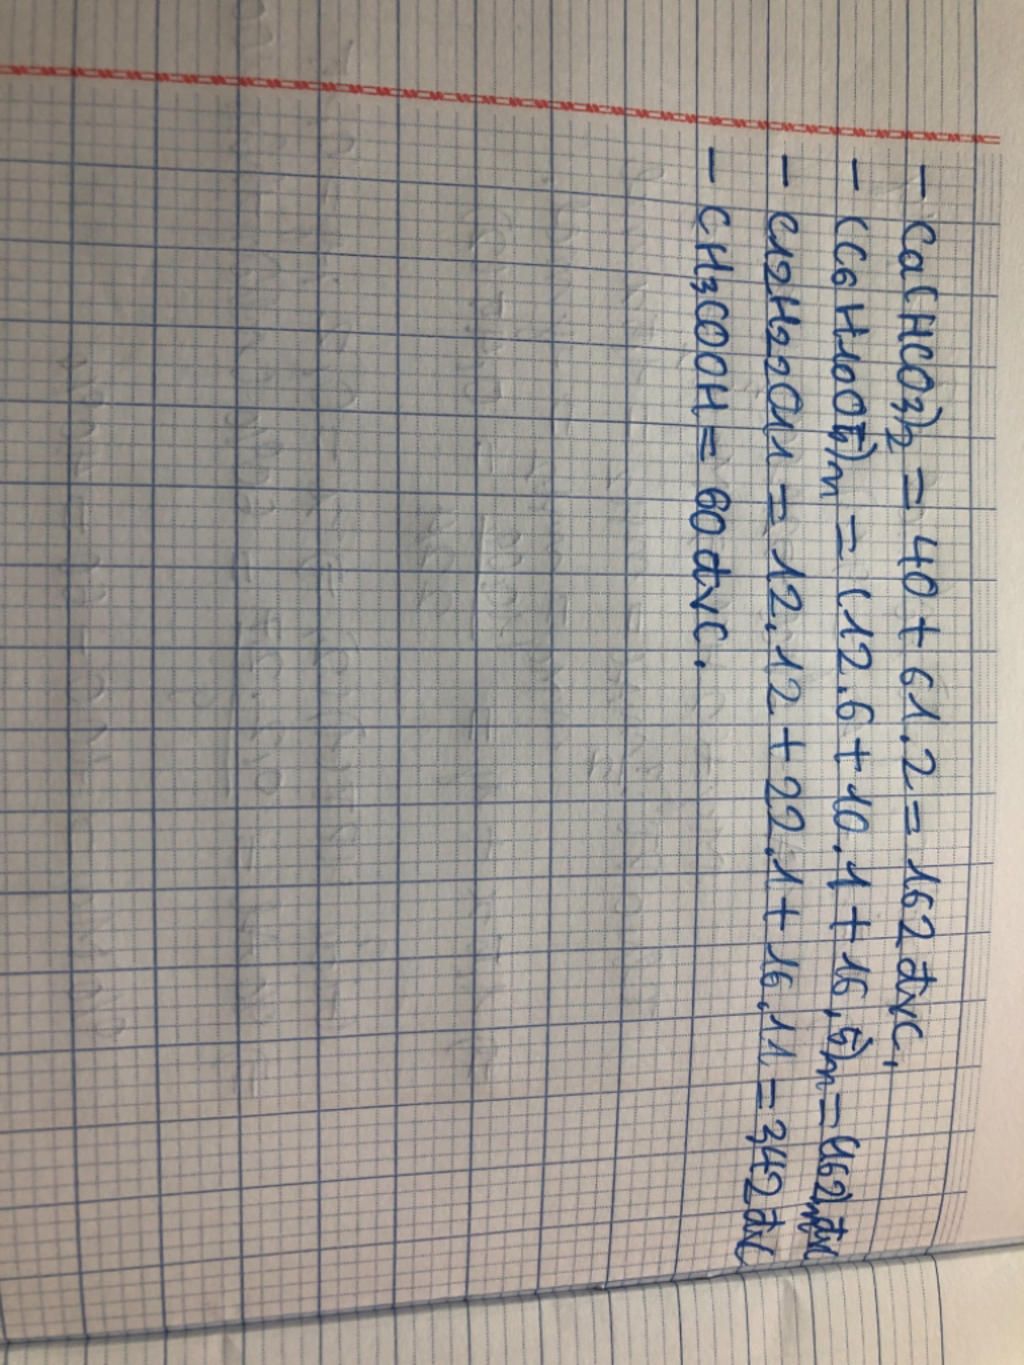 - Ca(HCO3)2 = 40 + 61.2 = 162 đvC.
- (C6H10O5)n = (12.6 + 10.1 + 16.5)n = (162)n đvC
- C12H22O11 = 12.12 + 22.1 + 16.11 = 342 đvC
- CH3COOH = 60 đvC.